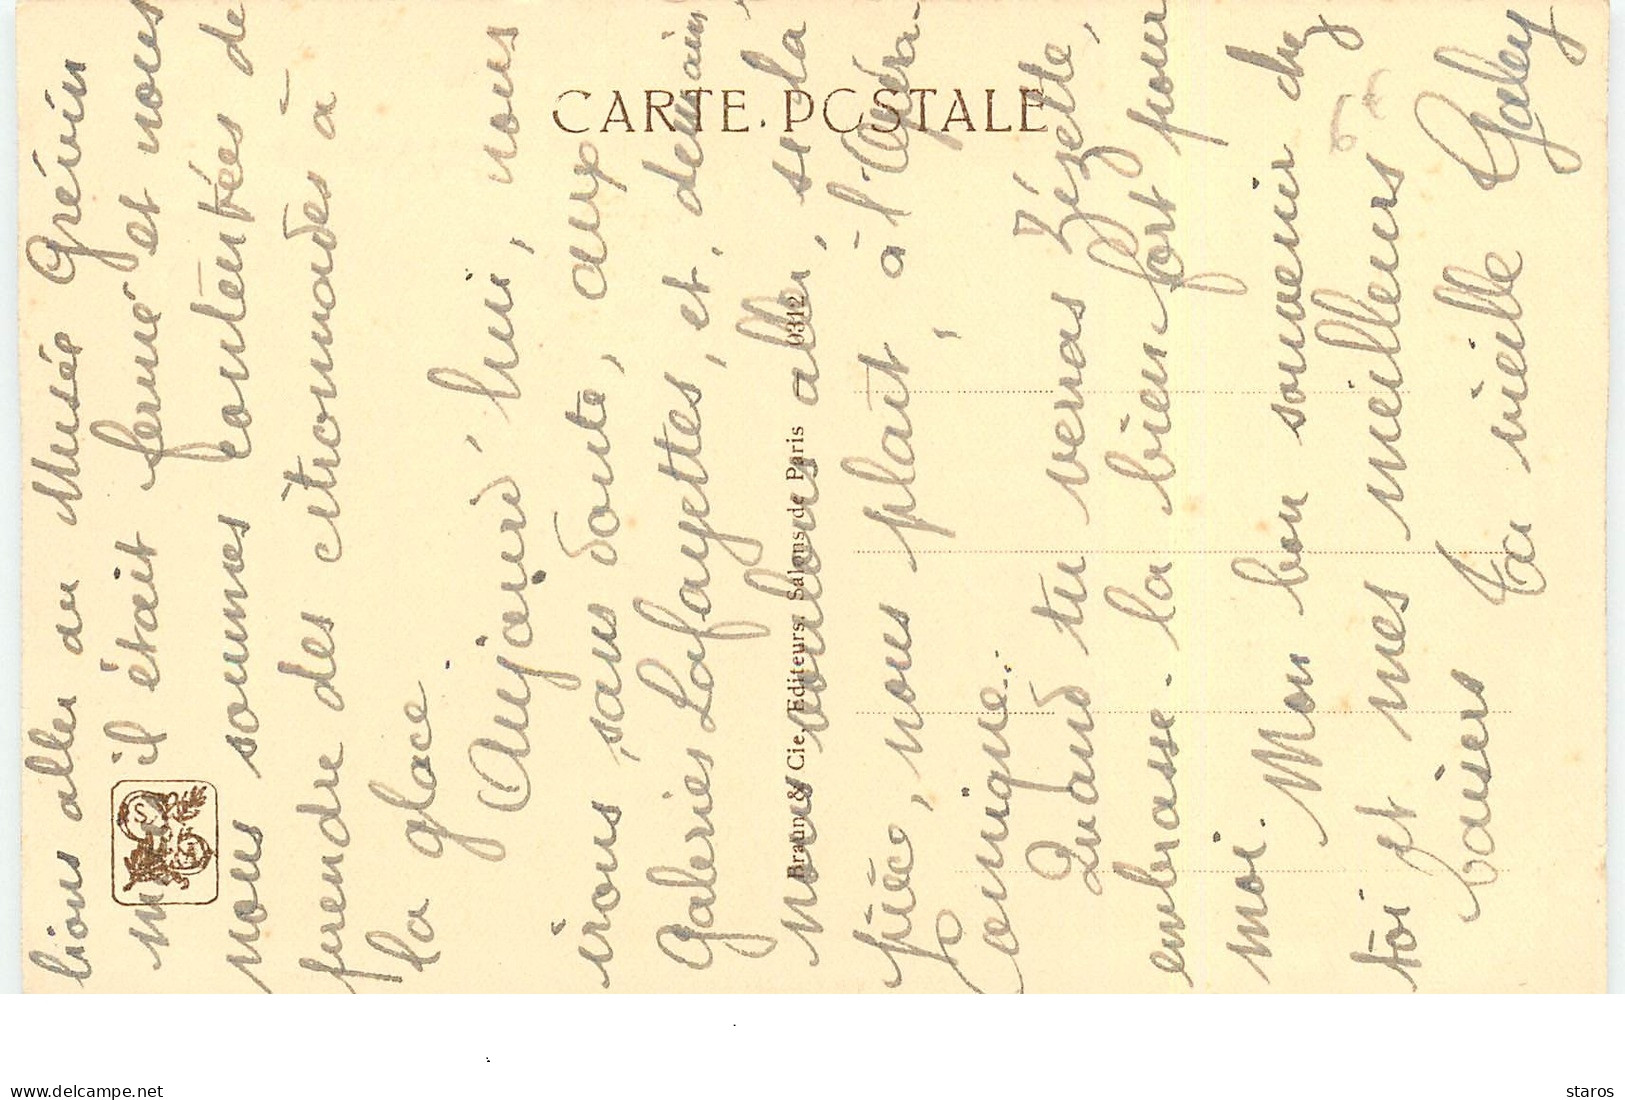 lions aller au Musée Grévin
mais il était fermé et nous
nous sommes contentées de
prendre des citronnades à
la glace.
Aujourd'hui, nous
irons, sans doute, aux
Galeries Lafayettes, et, demain
nous voulons aller, si la
pièce, nous plaît, à l'Opéra-
Comique..
Quand tu verras Zézette,
embrasse-la bien fort pour
moi. Mon bon souvenir chez
toi et mes meilleurs
baisers Ta vieille Galey
CARTE POSTALE
Braun & Cie, Editeurs, Salons de Paris — 9312
delcampe.net
staros